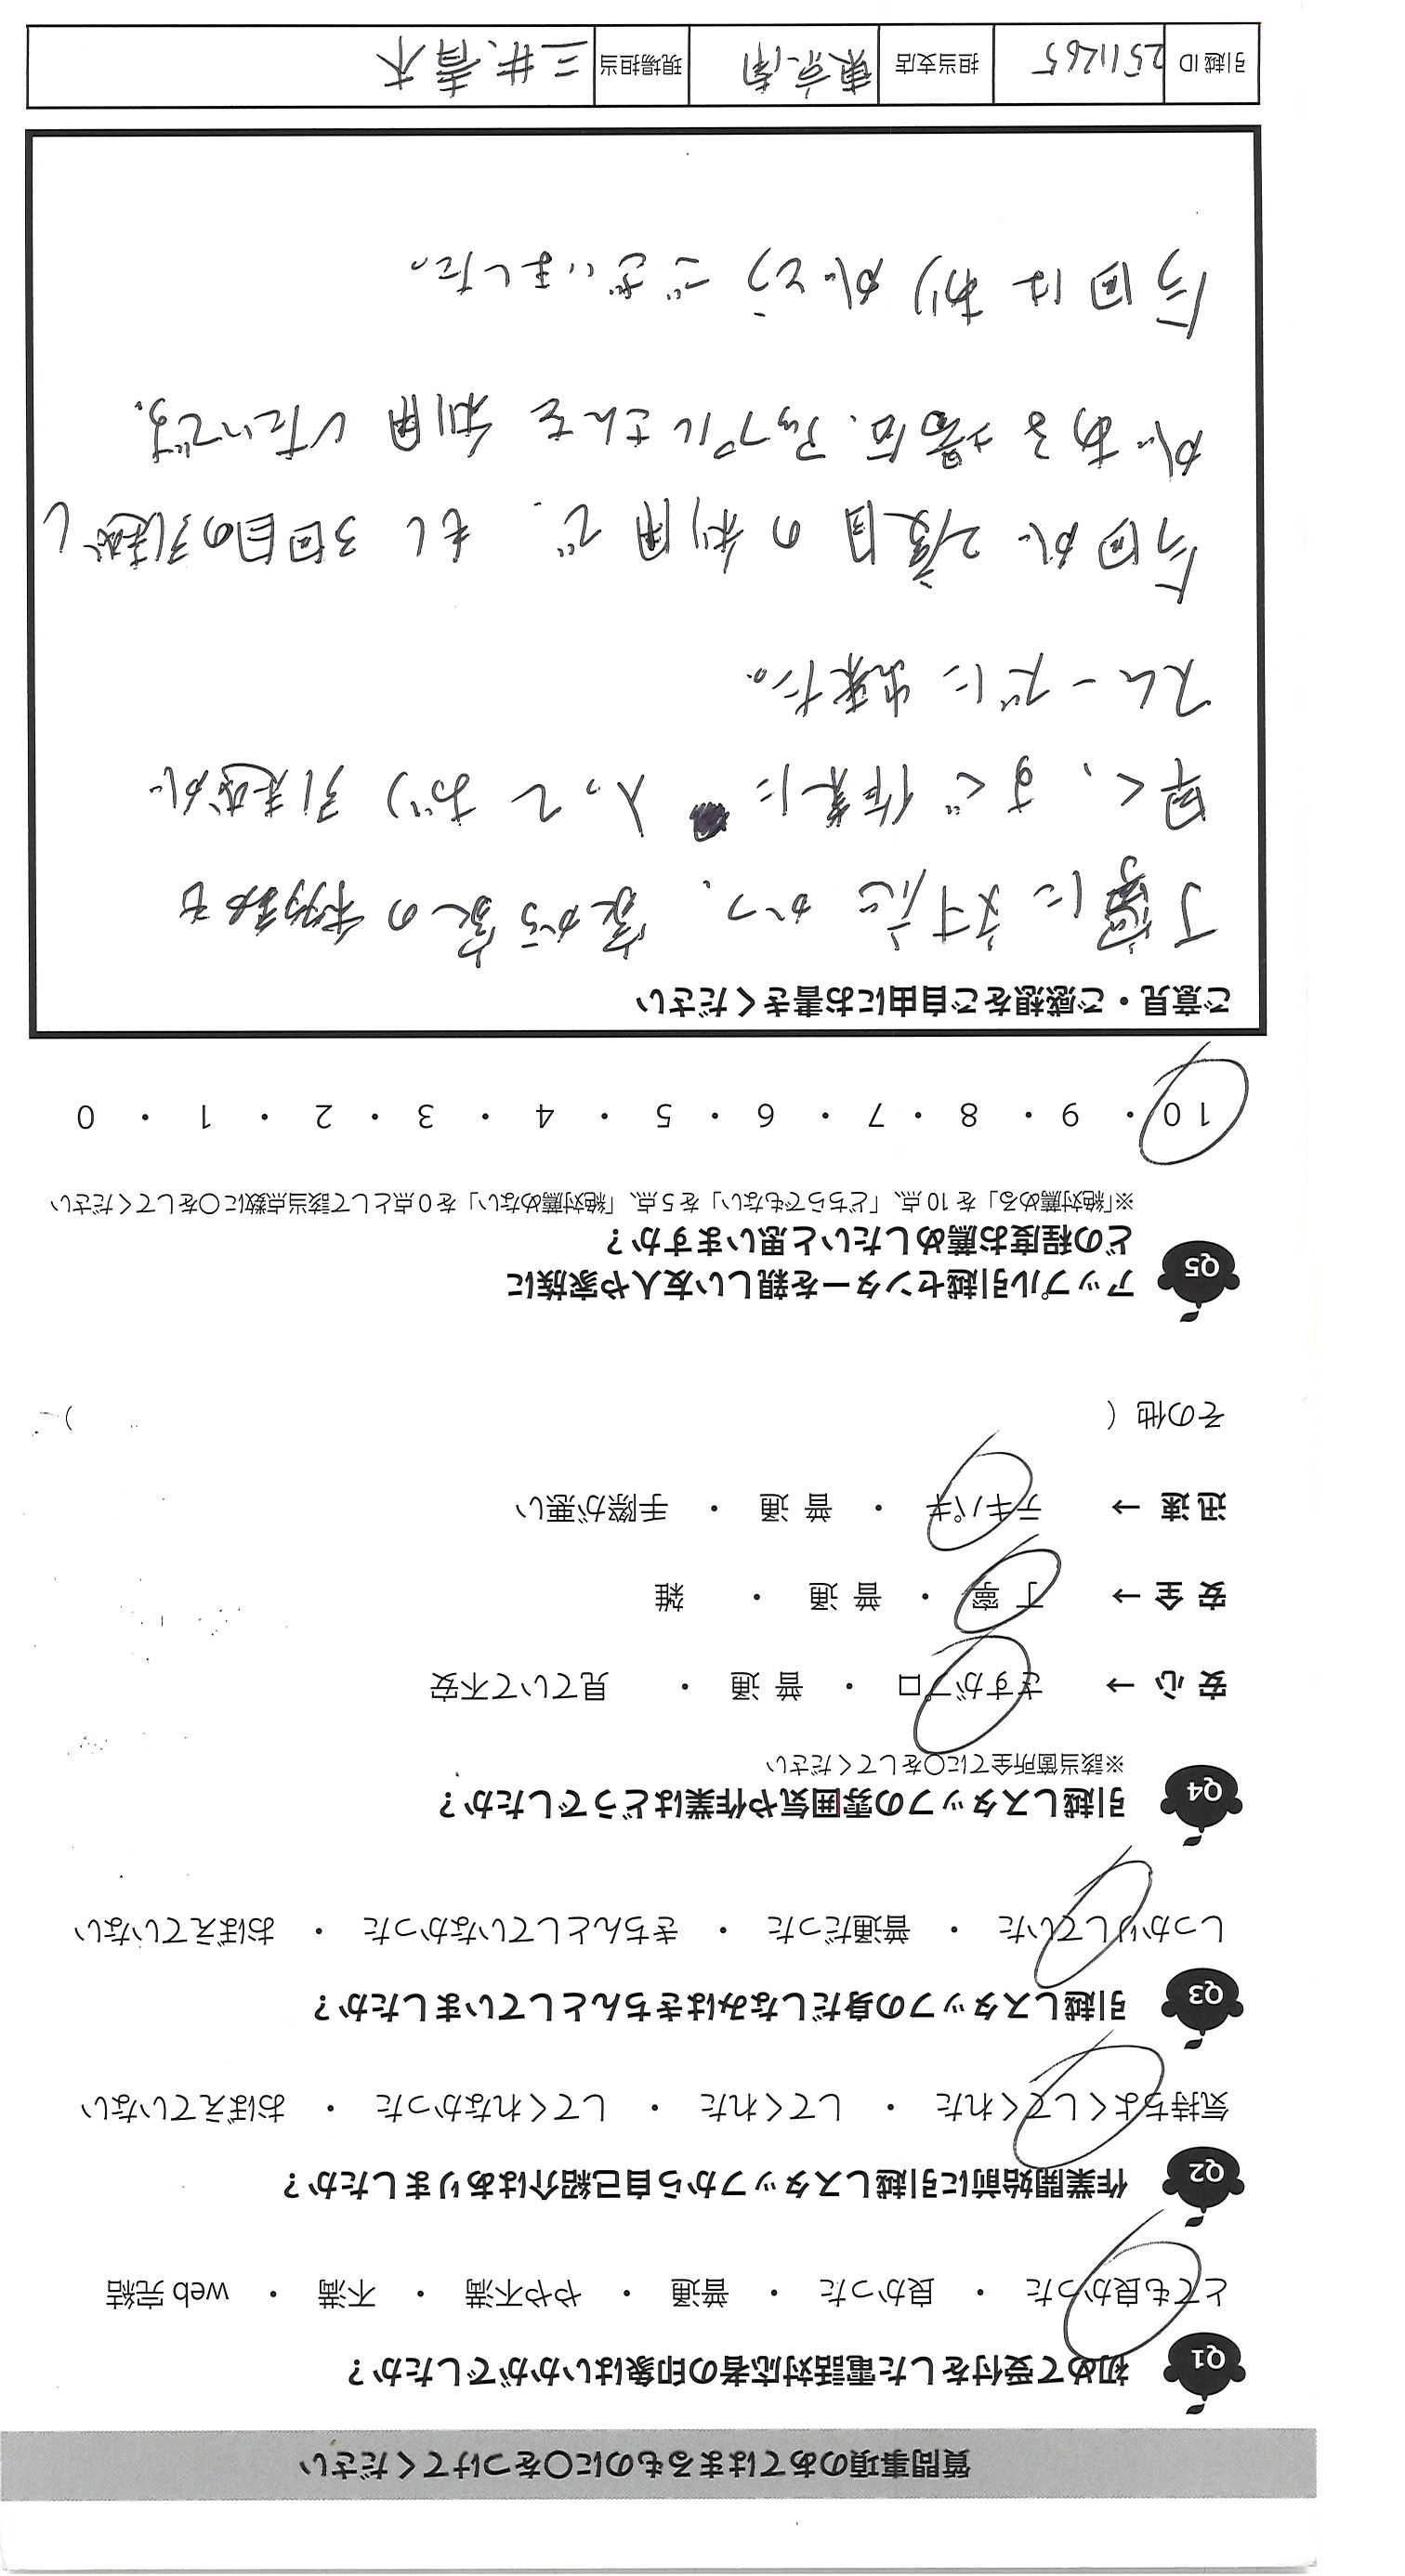 質問事項のあてはまるものに○をつけてください
Q1 初めて受付をした電話対応者の印象はいかがでしたか？
とても良かった ・ 良かった ・ 普通 ・ やや不満 ・ 不満 ・ web 完結
Q2 作業開始前に引越しスタッフから自己紹介はありましたか？
気持ちよくしてくれた ・ してくれた ・ してくれなかった ・ おぼえていない
Q3 引越しスタッフの身だしなみはきちんとしていましたか？
しっかりしていた ・ 普通だった ・ きちんとしていなかった ・ おぼえていない
Q4 引越しスタッフの雰囲気や作業はどうでしたか？
※該当箇所全てに○をしてください
安心 → さすがプロ ・ 普通 ・ 見ていて不安
安全 → 丁寧 ・ 普通 ・ 雑
迅速 → テキパキ ・ 普通 ・ 手際が悪い
その他（ ）
Q5 アップル引越センターを親しい友人や家族に
どの程度お薦めしたいと思いますか？
※「絶対薦める」を 10 点、「どちらでもない」を 5 点、「絶対薦めない」を 0 点として該当点数に○をしてください
10 ・ 9 ・ 8 ・ 7 ・ 6 ・ 5 ・ 4 ・ 3 ・ 2 ・ 1 ・ 0
ご意見・ご感想をご自由にお書きください
丁寧に対応かつ、家から家の移動も
早く、すぐ作業に入っており引越がい
スムーズに出来た。
今回が2度目の利用で、もし3回目の引越がし
がある場合、アップルさんを利用したいです。
今回はありがとうございました。
引越 ID 2511265 担当支店 東京南 現場担当 三井、青木